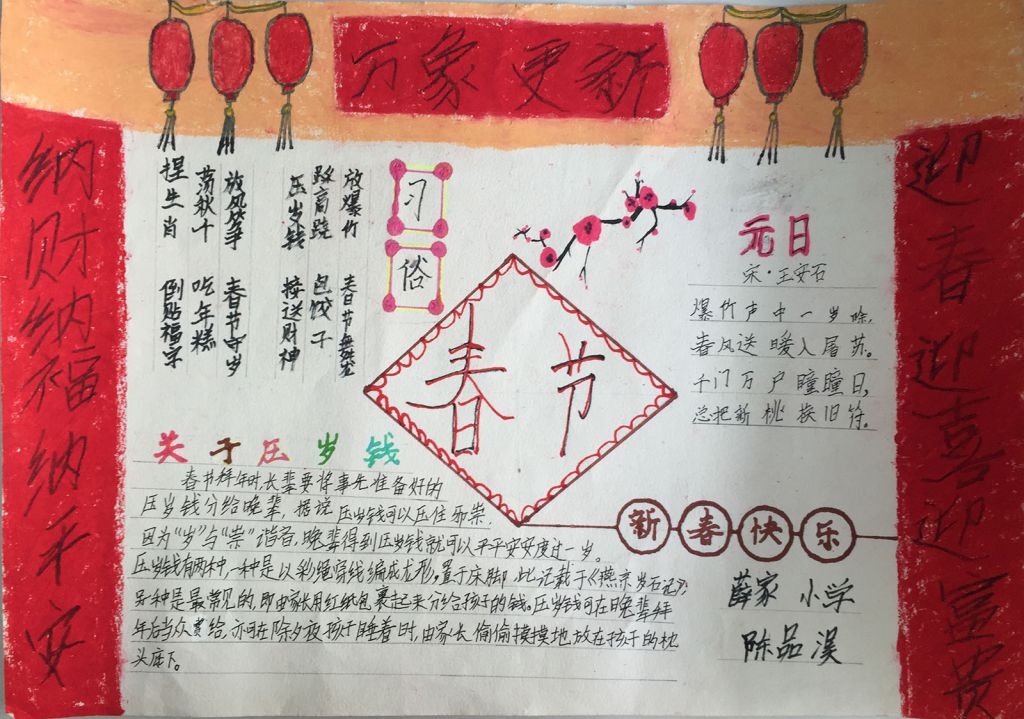 万象更新
迎春迎喜迎富贵
纳财纳福纳平安
习俗
放爆竹 春节舞龙
踩高跷 包饺子
压岁钱 接送财神
放风筝 春节守岁
荡秋千 吃年糕
捏生肖 倒贴福字
春节
元日
宋·王安石
爆竹声中一岁除,
春风送暖入屠苏。
千门万户瞳瞳日,
总把新桃换旧符。
关于压岁钱
春节拜年时,长辈要将事先准备好的
压岁钱分给晚辈,据说压岁钱可以压住邪祟,
因为“岁”与“祟”谐音,晚辈得到压岁钱就可以平平安安度过一岁。
压岁钱有两种,一种是以彩绳穿线编成龙形,置于床脚,此记载于《燕京岁石记》;
另种是最常见的,即由家长用红纸包裹起来分给孩子的钱。压岁钱可在晚辈拜
年后当众赏给,亦可在除夕夜孩子睡着时,由家长偷偷摸摸地放在孩子的枕
头底下。
新春快乐
薛家小学
陈品溪